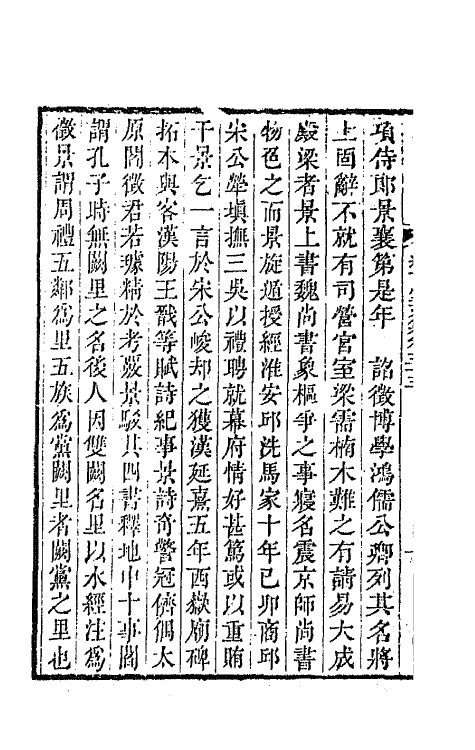 項侍郎景襄第是年　詔徵博學鴻儒公卿列其名將
上固辭不就有司營官室梁需楠木難之有請易大成
殿梁者景上書魏尚書象樞爭之事寢名震京師尚書
物色之而景旋遁授經淮安邱洗馬家十年己卯商邱
宋公犖填撫三吳以禮聘就幕府情好甚篤或以重賄
干景乞一言於宋公峻却之獲漢延熹五年西嶽廟碑
拓本與客漢陽王戩等賦詩紀事景詩奇警冠儕偶太
原閻徵君若璩精於考覈景駁其四書釋地中十事閻
謂孔子時無闕里之名後人因雙闕名里以水經注為
徵景謂周禮五鄰為里五族為黨闕里者闕黨之里也